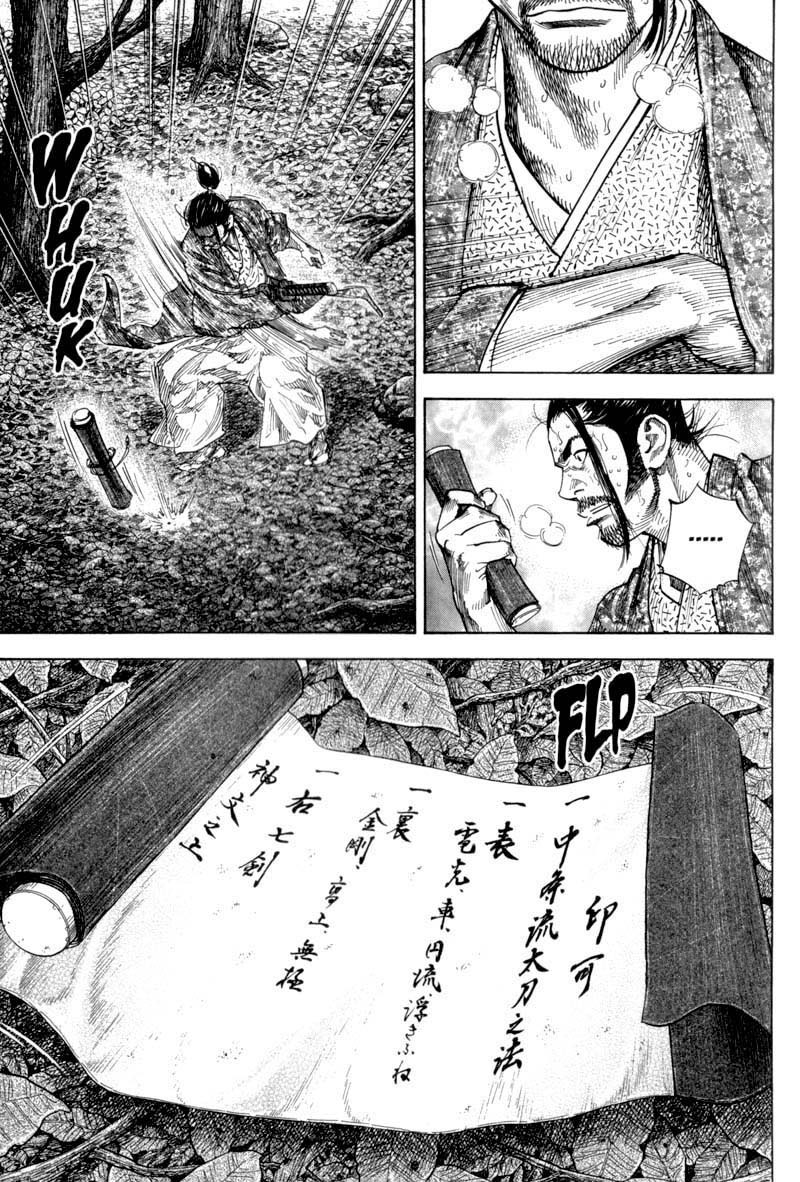 WHUK
.....
FLP
印可
一 中条流太刀之法
一 表
電光、車、円流、浮きふね
一 裏
金剛、高上、無極
一 右七剣
神文之上